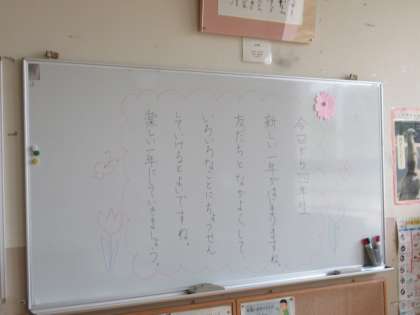 今日から四年生
新しい一年がはじまりますね。
友だちとなかよくして、
いろいろなことにちょうせん
していけるとよいですね。
楽しい一年にしていきましょう。